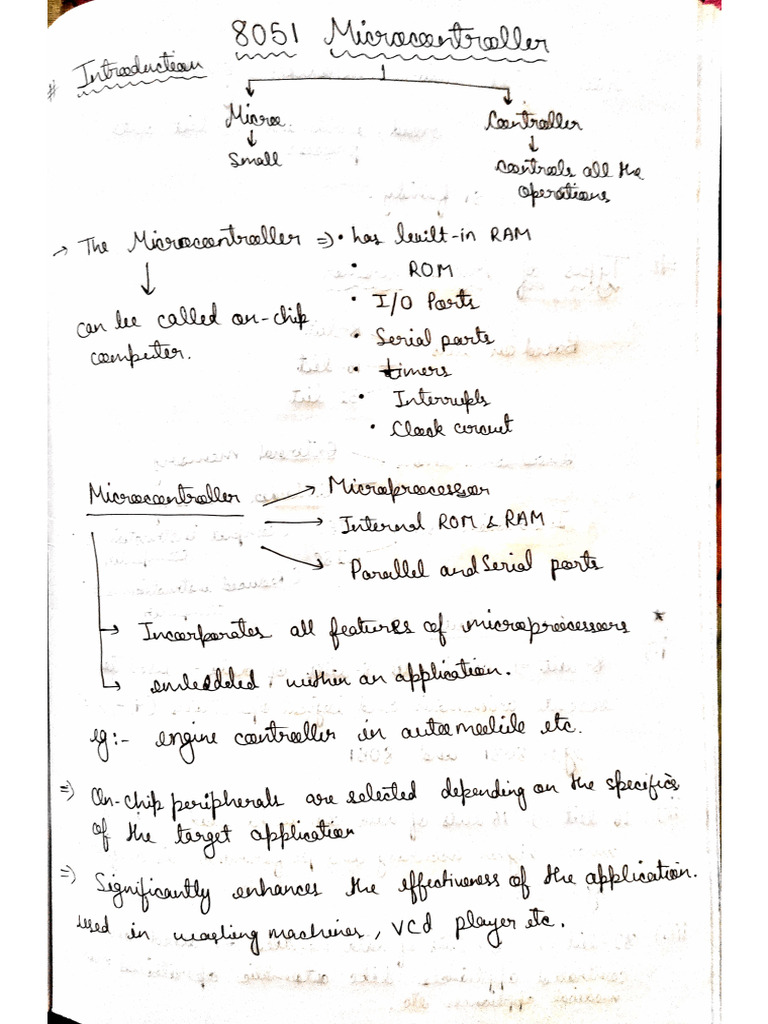 8051 Microcontroller
# Introduction
Micro Controller
↓ ↓
Small controls all the
operations
→ The Microcontroller ⇒ • has built-in RAM
↓ • ROM
can be called on-chip • I/O Ports
computer. • Serial ports
• timers
• Interrupts
• Clock circuit
Microcontroller → Microprocessor
→ Internal ROM & RAM
→ Parallel and Serial ports
→ Incorporates all features of microprocessors *
→ embedded within an application.
eg:- engine controller in automobile etc.
⇒ On-chip peripherals are selected depending on the specifics
of the target application
⇒ Significantly enhances the effectiveness of the application.
used in washing machines, VCd player etc.